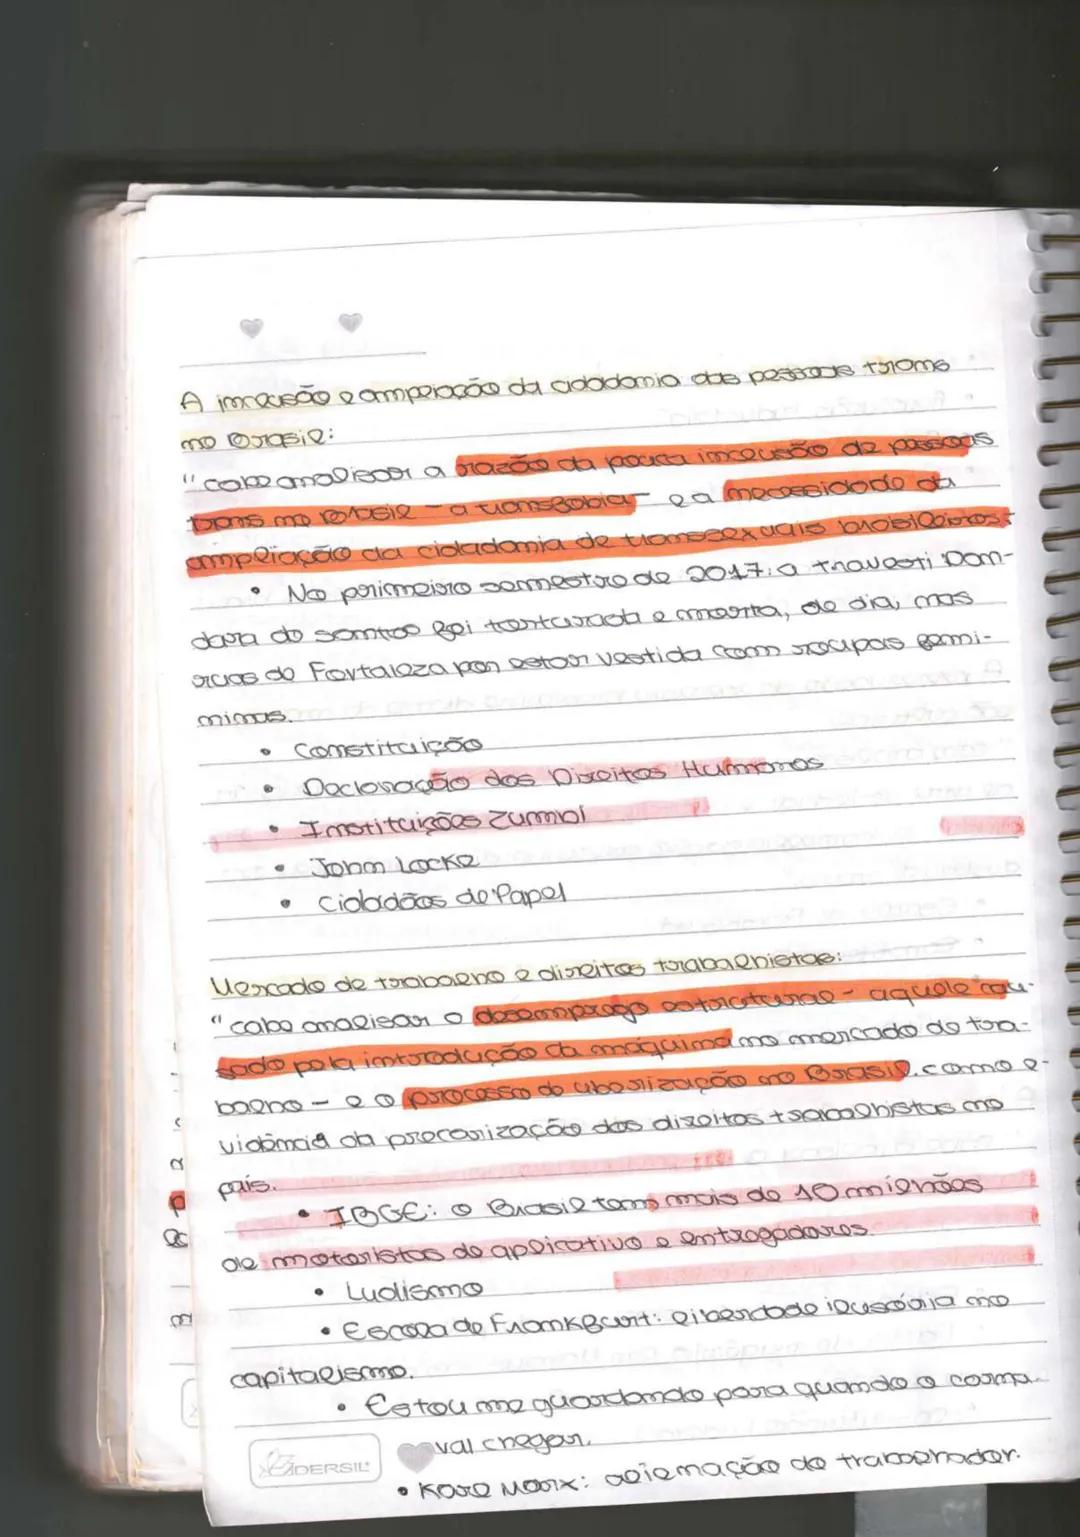 A inclusão e ampliação da cidadania das pessoas trans
no Brasil:
"cabe analisar a razão da pouca inclusão de pessoas
trans no Brasil - a transfobia - e a necessidade da
ampliação da cidadania de transsexuais brasileiros:
• No primeiro semestre de 2017: a travesti Dan-
dara do santos foi torturada e morta, de dia, nas
ruas de Fortaleza por estar vestida com roupas femi-
ninas.
• Constituição
• Declaração dos Direitos Humanos
• Instituições Zumbi
• John Locke
• Cidadãos de Papel
Mercado de trabalho e direitos trabalhistas:
"cabe analisar o desemprego estrutural - aquele cau-
sado pela introdução da máquina no mercado de tra-
balho - e o processo de uberização no Brasil, como e-
vidência da precarização dos direitos trabalhistas no
país.
• IBGE: o Brasil tem mais de 10 milhões
de motoristas de aplicativo e entregadores.
• Ludismo
• Escola de Frankfurt: liberdade ilusória no
capitalismo.
• Estou me guardando para quando o carna-
val chegar.
• Karl Marx: alienação do trabalhador.
DERSIL